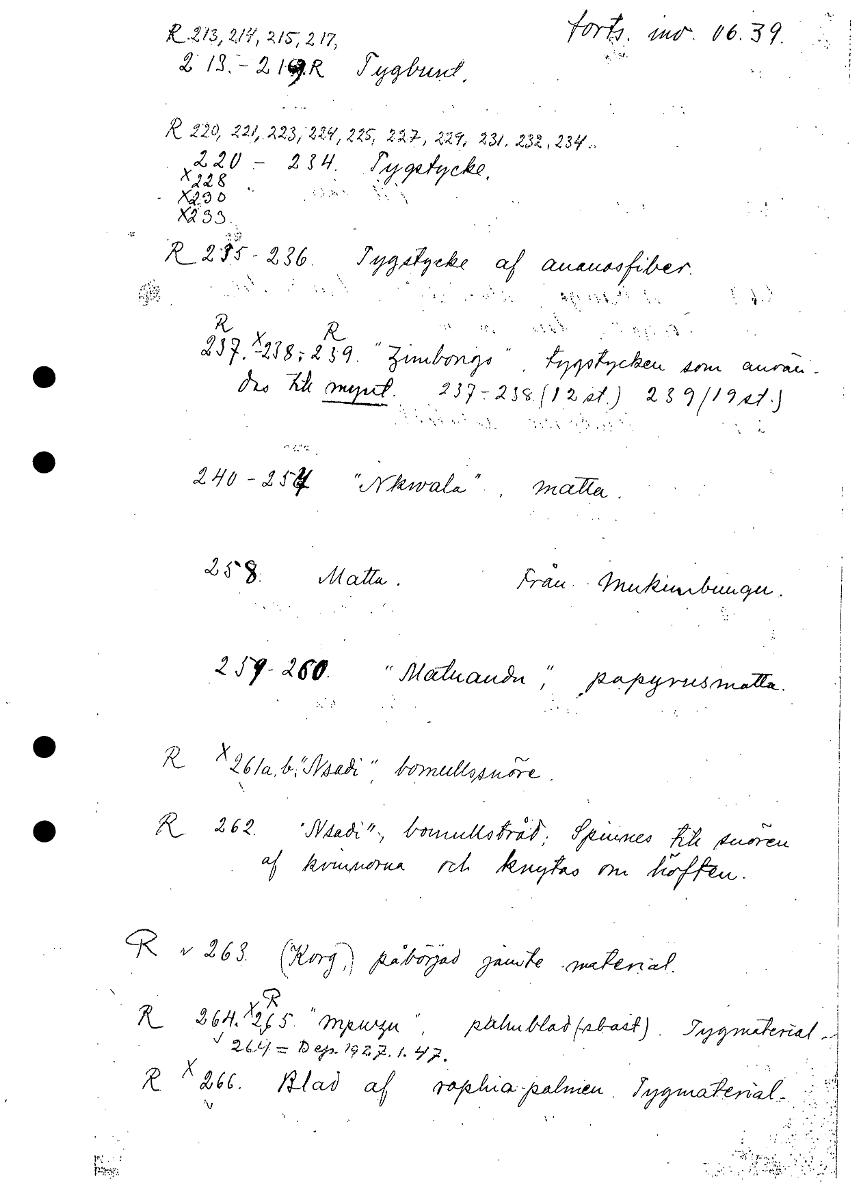 forts. inv. 06.39.
R 213, 214, 215, 217,
213.-219. R Tygbunt.
R 220, 221, 223, 224, 225, 227, 229, 231, 232, 234..
220 - 234. Tygstycke.
X228 "
X230
X233
R 235-236. Tygstycke af ananasfiber.
R X R
237.-238; 239. "Zimbongo", tygstycken som använ-
das till mynt. 237-238 (12 st.) 239 (19 st.)
240-257 "Nkwala", matta.
258. Matta. Från Mukimbungu.
259-260. "Matuandu", papyrusmatta.
R X261a,b. "Nsadi", bomullssnöre.
R 262. "Nsadi", bomullstråd; Spinnes till snören
af kvinnorna och knytas om höften.
R v 263. (Korg,) påbörjad jämte material.
R 264. X R 265. "mpuzu", palmblad(sbast). Tygmaterial-
264 = Dep. 1927.1.47.
R X 266. Blad af raphia-palmen. Tygmaterial-